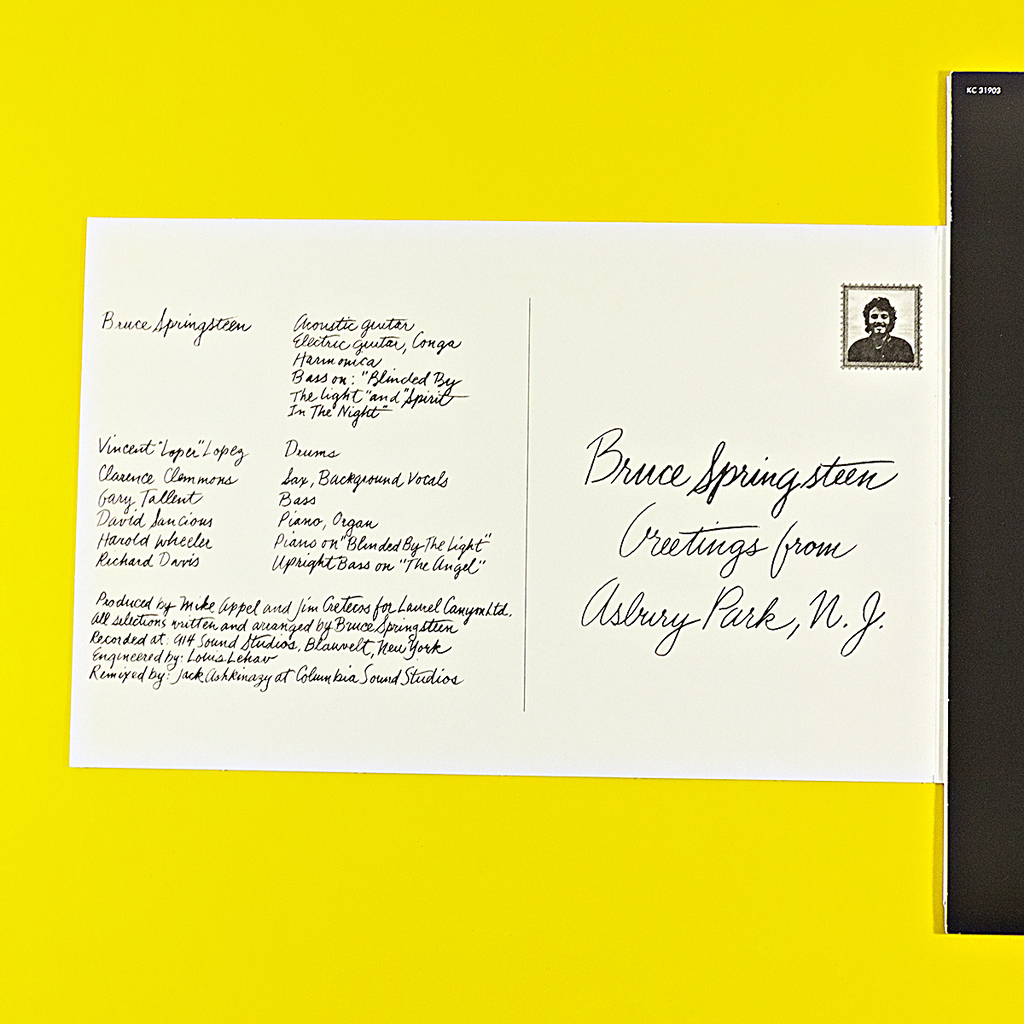 KC 31903
Bruce Springsteen
Acoustic guitar
Electric guitar, Conga
Harmonica
Bass on: "Blinded By
The Light" and "Spirit
In The Night"
Vincent "Loper" Lopez Drums
Clarence Clemmons Sax, Background Vocals
Gary Tallent Bass
David Sancious Piano, Organ
Harold Wheeler Piano on "Blinded By The Light"
Richard Davis Upright Bass on "The Angel"
Produced by Mike Appel and Jim Cretecos for Laurel Canyon Ltd.
All selections written and arranged by Bruce Springsteen
Recorded at: 914 Sound Studios, Blauvelt, New York
Engineered by: Louis Lehav
Remixed by: Jack Ashkinazy at Columbia Sound Studios
Bruce Springsteen
Greetings from
Asbury Park, N. J.